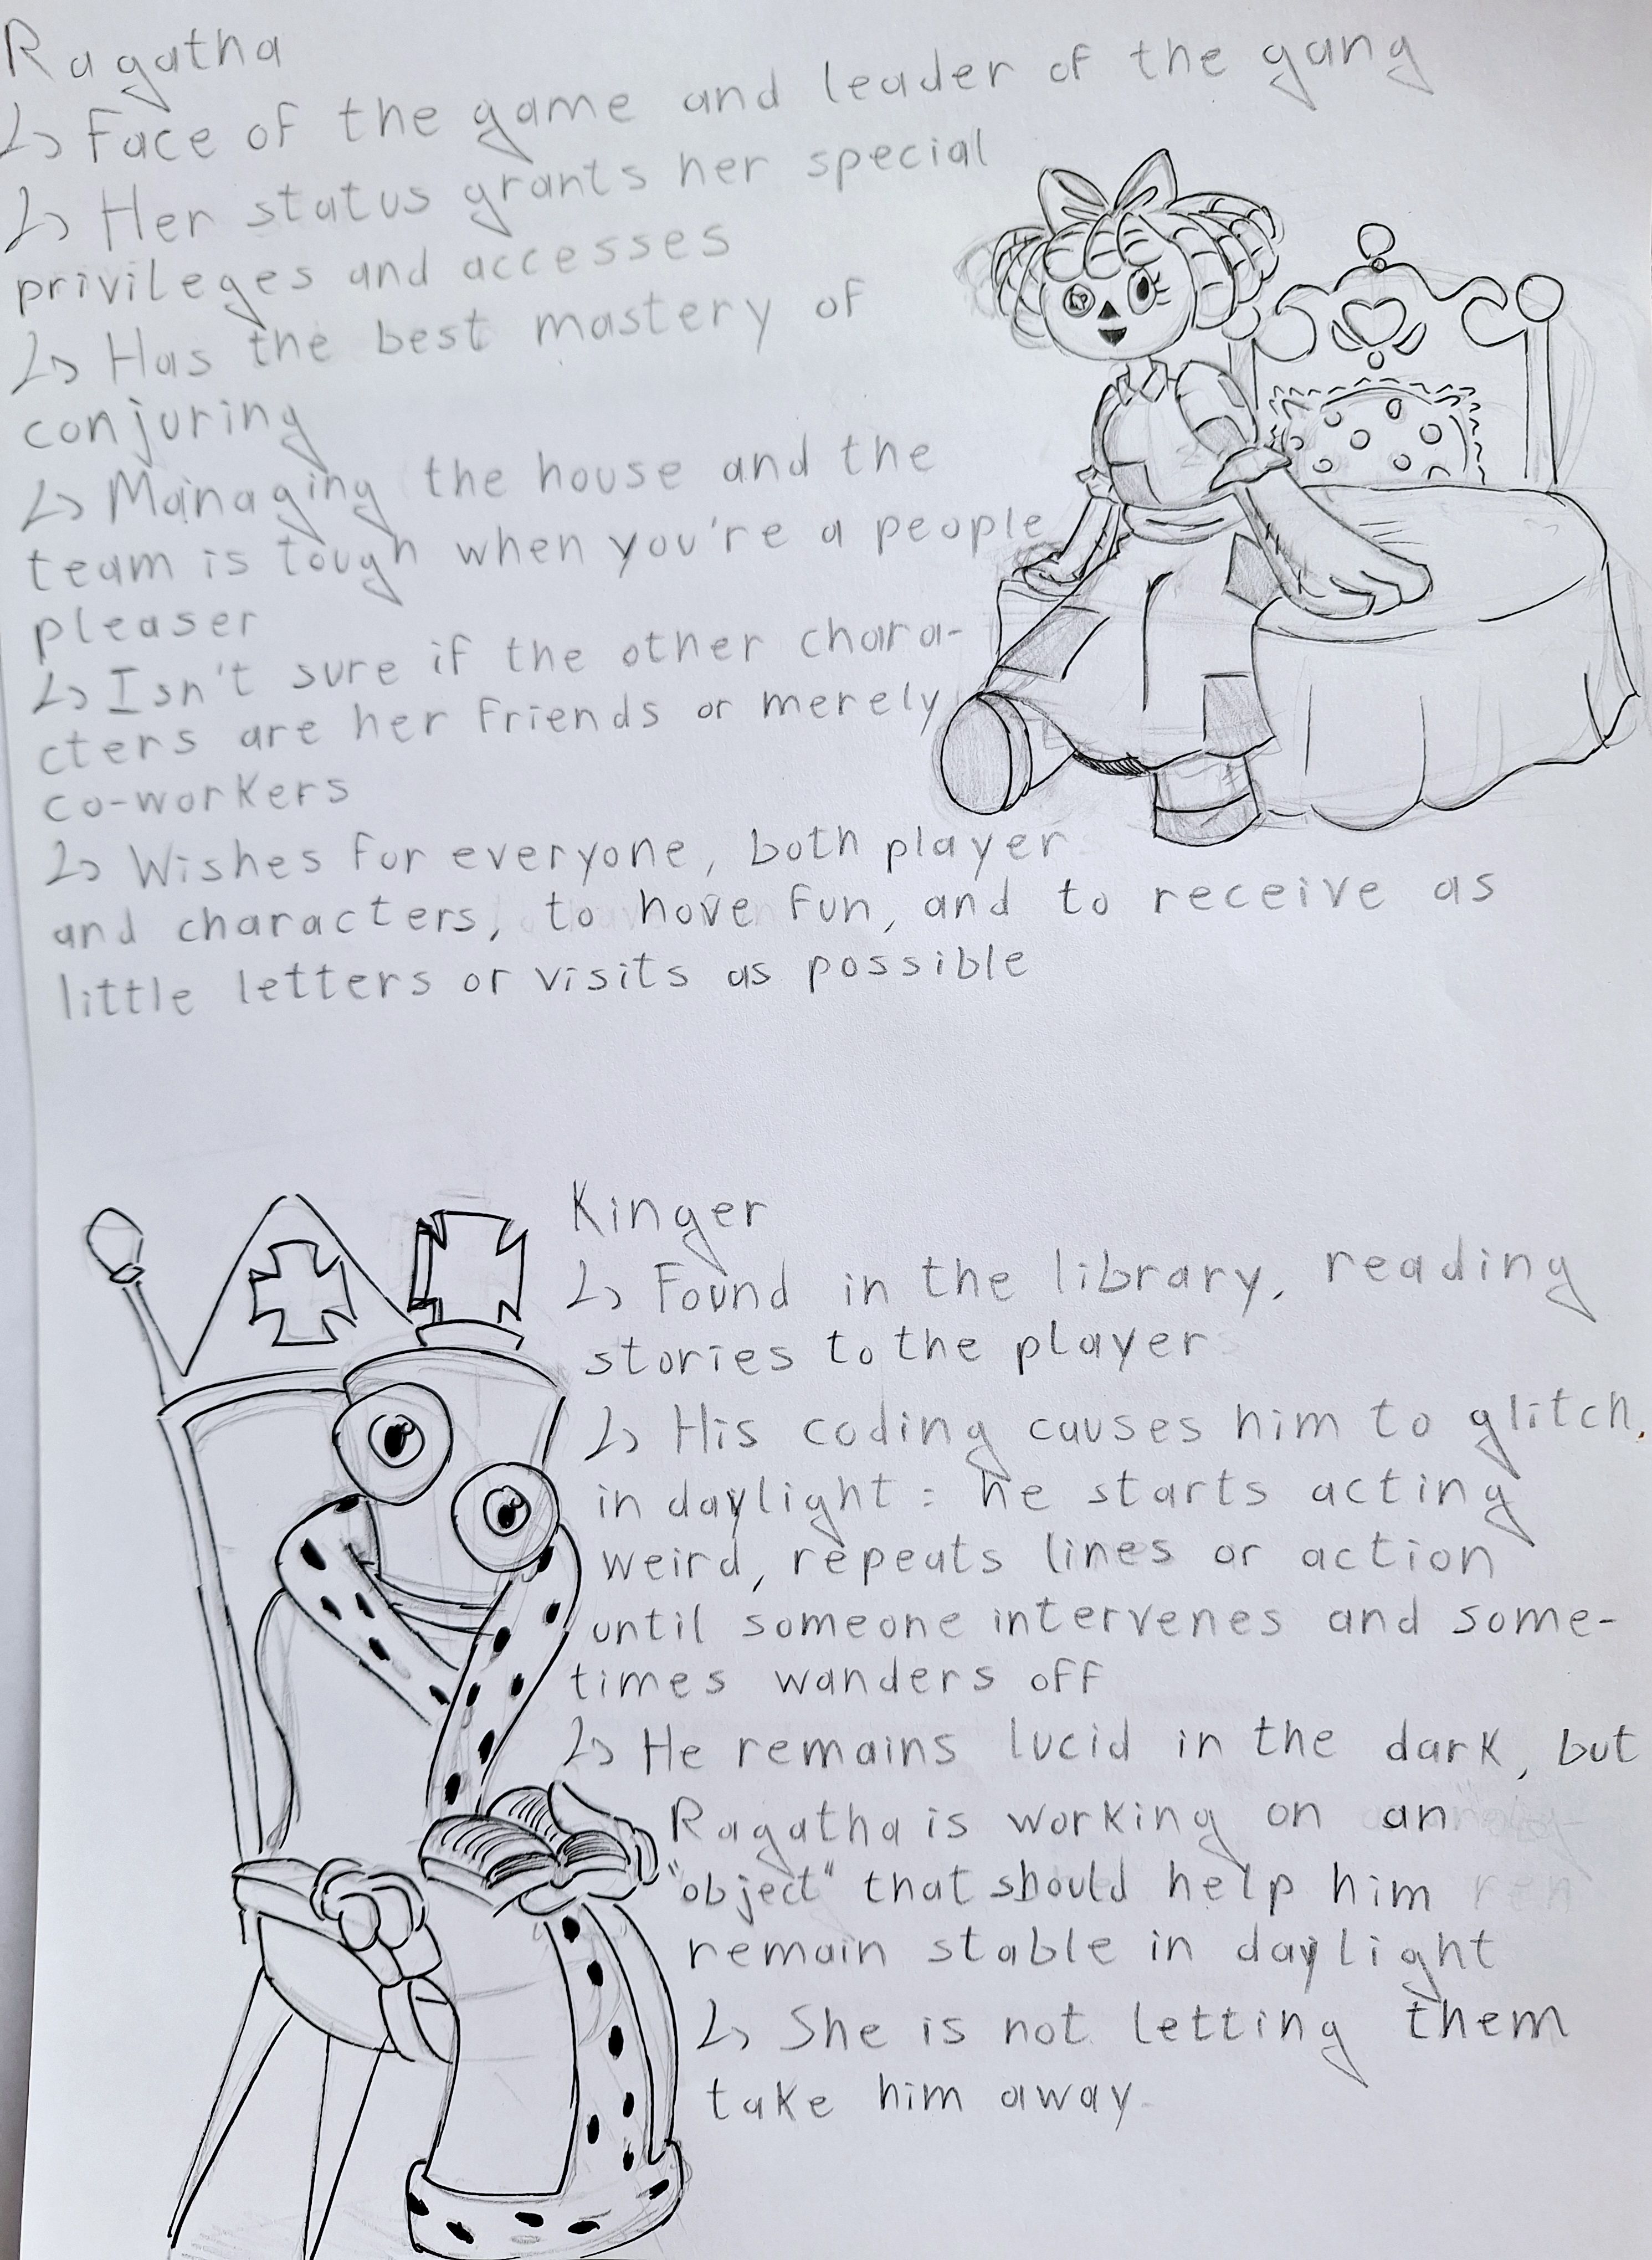 Ragatha
↳ Face of the game and leader of the gang
↳ Her status grants her special
privileges and accesses
↳ Has the best mastery of
conjuring
↳ Managing the house and the
team is tough when you're a people
pleaser
↳ Isn't sure if the other chara-
cters are her friends or merely
co-workers
↳ Wishes for everyone, both player
and characters, to have fun, and to receive as
little letters or visits as possible
Kinger
↳ Found in the library, reading
stories to the player
↳ His coding causes him to glitch
in daylight: he starts acting
weird, repeats lines or action
until someone intervenes and some-
times wanders off
↳ He remains lucid in the dark, but
Ragatha is working on an
"object" that should help him
remain stable in daylight
↳ She is not letting them
take him away.